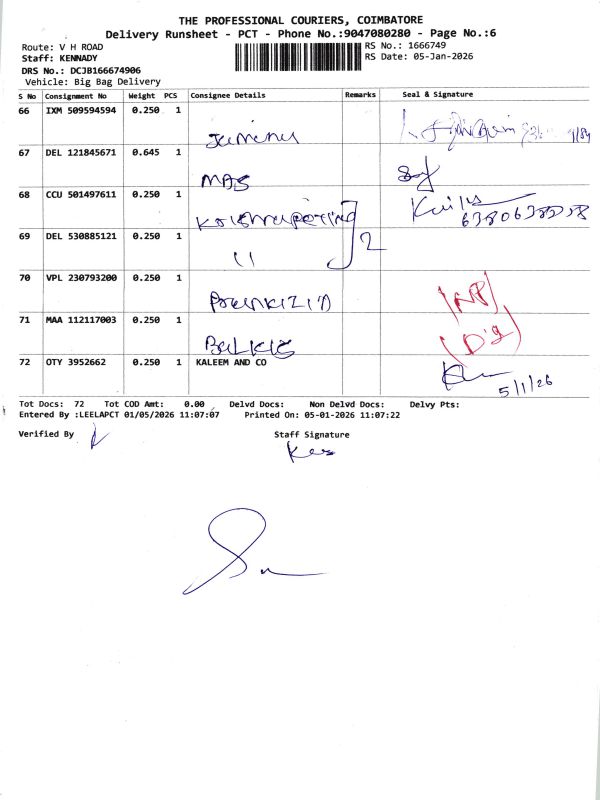 THE PROFESSIONAL COURIERS, COIMBATORE
Delivery Runsheet - PCT - Phone No.:9047080280 - Page No.:6
Route: V H ROAD
Staff: KENNADY
DRS No.: DCJB166674906
Vehicle: Big Bag Delivery
RS No.: 1666749
RS Date: 05-Jan-2026
S No Consignment No Weight PCS Consignee Details Remarks Seal & Signature
66 IXM 509594594 0.250 1
67 DEL 121845671 0.645 1
MAS
68 CCU 501497611 0.250 1
69 DEL 530885121 0.250 1
11 2
70 VPL 230793200 0.250 1
71 MAA 112117003 0.250 1
BalKIS
72 OTY 3952662 0.250 1 KALEEM AND CO
5/1/26
Tot Docs: 72 Tot COD Amt: 0.00 Delvd Docs: Non Delvd Docs: Delvy Pts:
Entered By :LEELAPCT 01/05/2026 11:07:07 Printed On: 05-01-2026 11:07:22
Verified By Staff Signature